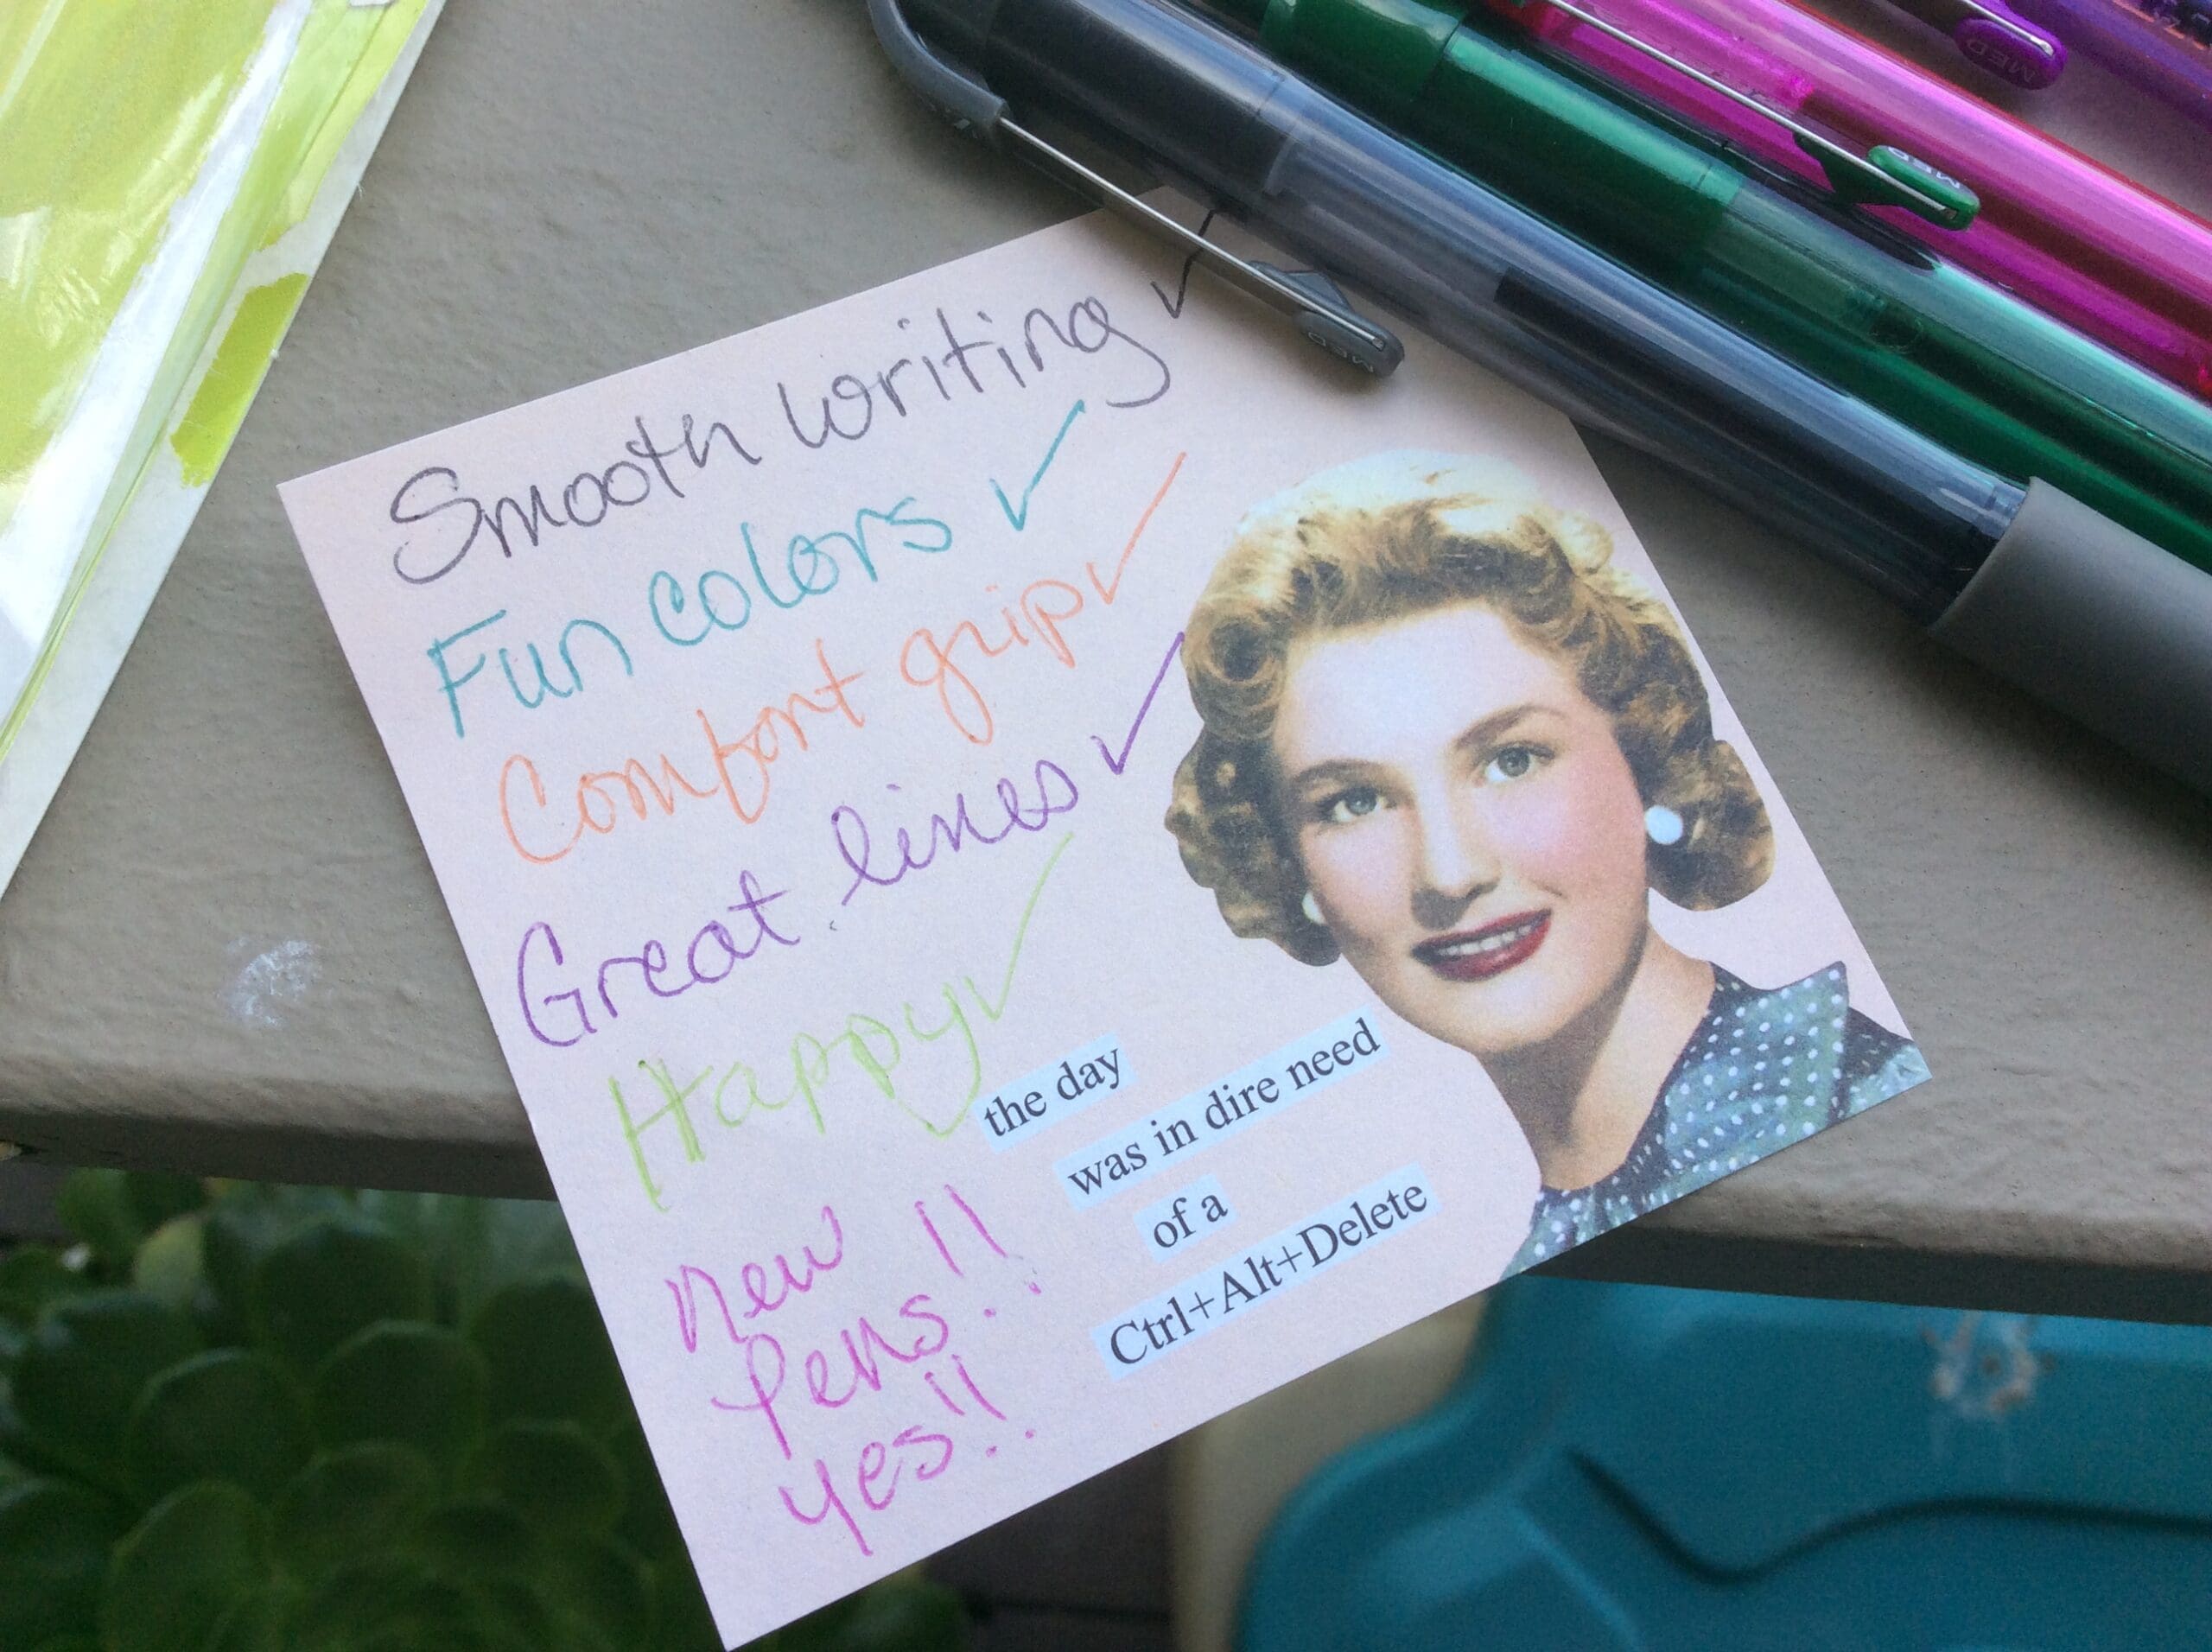 Smooth writing ✓
Fun colors ✓
Comfort grip ✓
Great lines ✓
Happy ✓
New
Pens!!
yes!!
the day
was in dire need
of a
Ctrl+Alt+Delete
MED
MED
MED